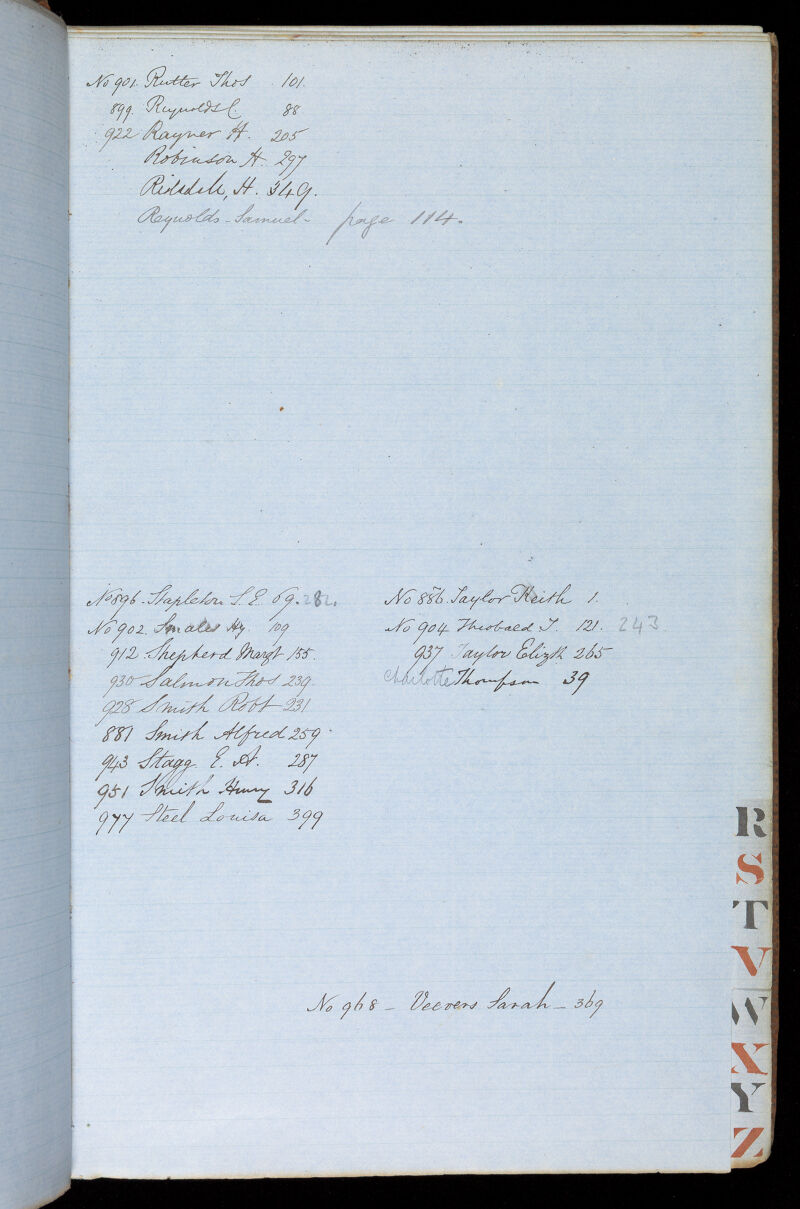 No 901. Rutter Thos 101.
899. Reynolds C. 88
922 Rayner H. 205
Robinson H. 297
Ridsdale, H. 349.
Reynolds - Samuel - page 114.
No 896. Stapleton S. E. 69. 282.
No 902. Smales Hy 109
912. Shepherd Margt 155.
930 Salmon Thos 239
928 Smith Robt 231
881 Smith Alfred 259
943 Stagg E. A. 287
951 Smith Henry 316
977 Steel Louisa 399
No 886. Taylor Keith 1.
No 904. Theobald T. 121. 243
937 Taylor Elizth 265
Charlotte Thompson 39
No 968 - Veevers Sarah - 369
R
S
T
V
W
X
Y
Z